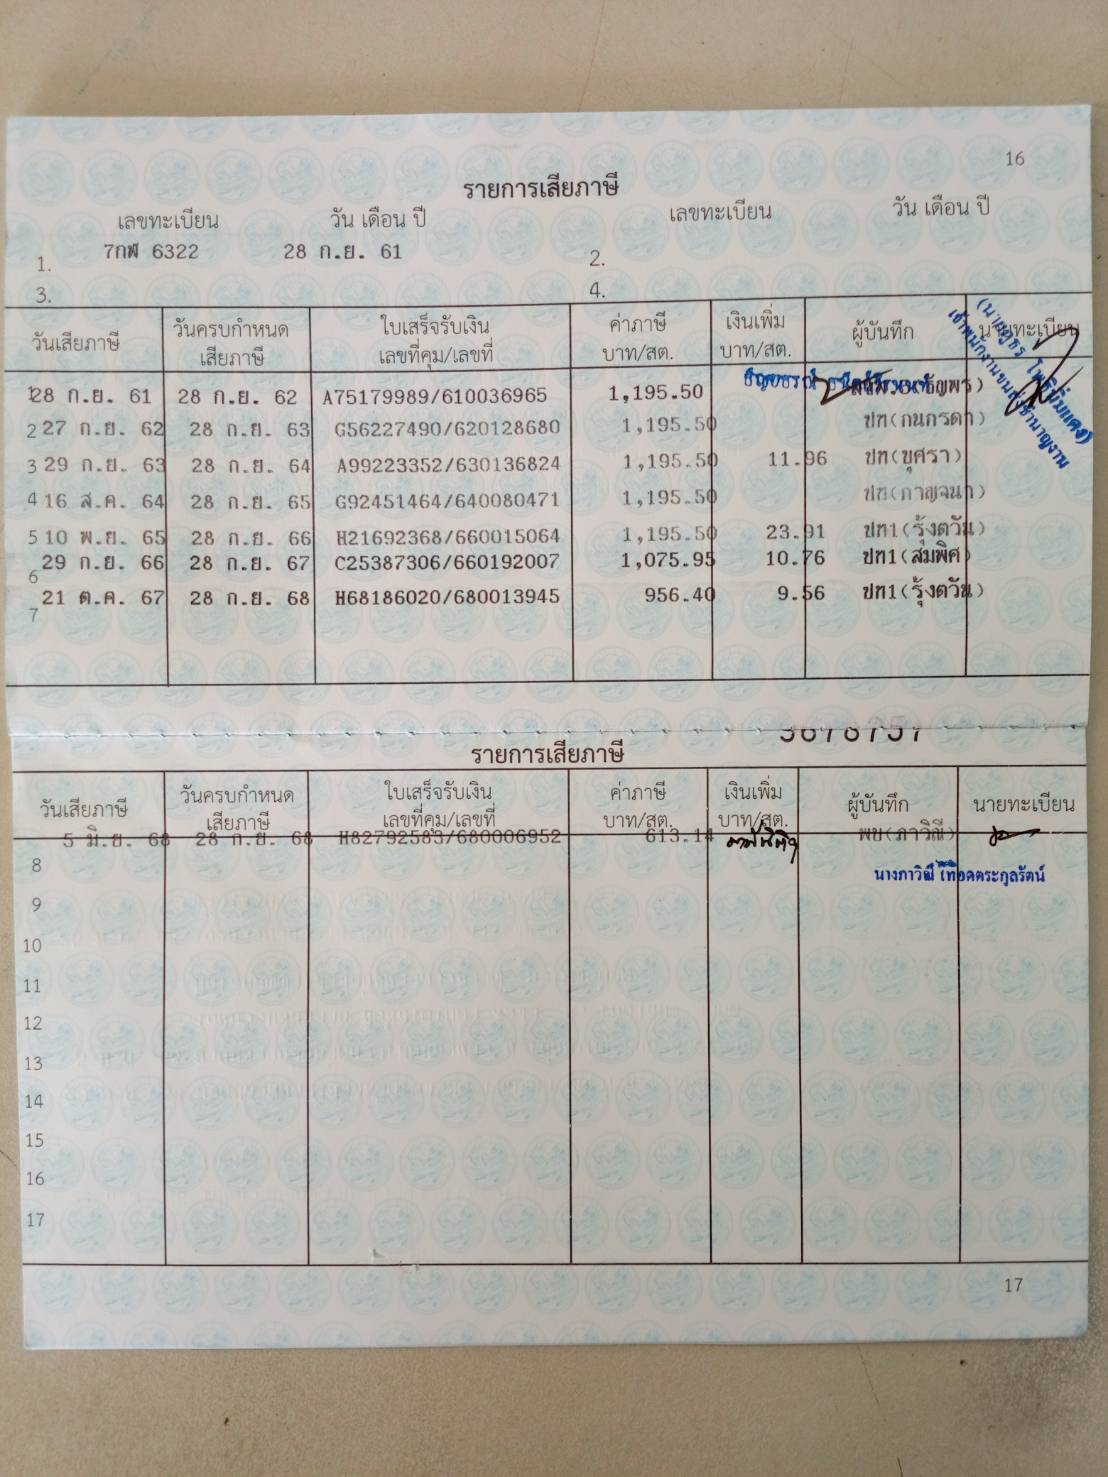 16
รายการเสียภาษี
เลขทะเบียน วัน เดือน ปี เลขทะเบียน วัน เดือน ปี
1. 7กฬ 6322 28 ก.ย. 61 2.
3. 4.
วันเสียภาษี วันครบกำหนดเสียภาษี ใบเสร็จรับเงิน เลขที่คุม/เลขที่ ค่าภาษี บาท/สต. เงินเพิ่ม บาท/สต. ผู้บันทึก นายทะเบียน
1 28 ก.ย. 61 28 ก.ย. 62 A75179989/610036965 1,195.50
2 27 ก.ย. 62 28 ก.ย. 63 G56227490/620128680 1,195.50 ปท(กนกรดา)
3 29 ก.ย. 63 28 ก.ย. 64 A99223352/630136824 1,195.50 11.96 ปท(บุศรา)
4 16 ส.ค. 64 28 ก.ย. 65 G92451464/640080471 1,195.50 ปท(กาญจนา)
5 10 พ.ย. 65 28 ก.ย. 66 H21692368/660015064 1,195.50 23.91 ปท1(รุ้งตวัน)
6 29 ก.ย. 66 28 ก.ย. 67 C25387306/660192007 1,075.95 10.76 ปท1(สมพิศ)
7 21 ต.ค. 67 28 ก.ย. 68 H68186020/680013945 956.40 9.56 ปท1(รุ้งตวัน)
รายการเสียภาษี
วันเสียภาษี วันครบกำหนดเสียภาษี ใบเสร็จรับเงิน เลขที่คุม/เลขที่ ค่าภาษี บาท/สต. เงินเพิ่ม บาท/สต. ผู้บันทึก นายทะเบียน
5 มิ.ย. 68 28 ก.ย. 68 H82792583/680006952 613.14 พบ(ภาวิณี)
8
นางภาวิณี
9
10
11
12
13
14
15
16
17
17